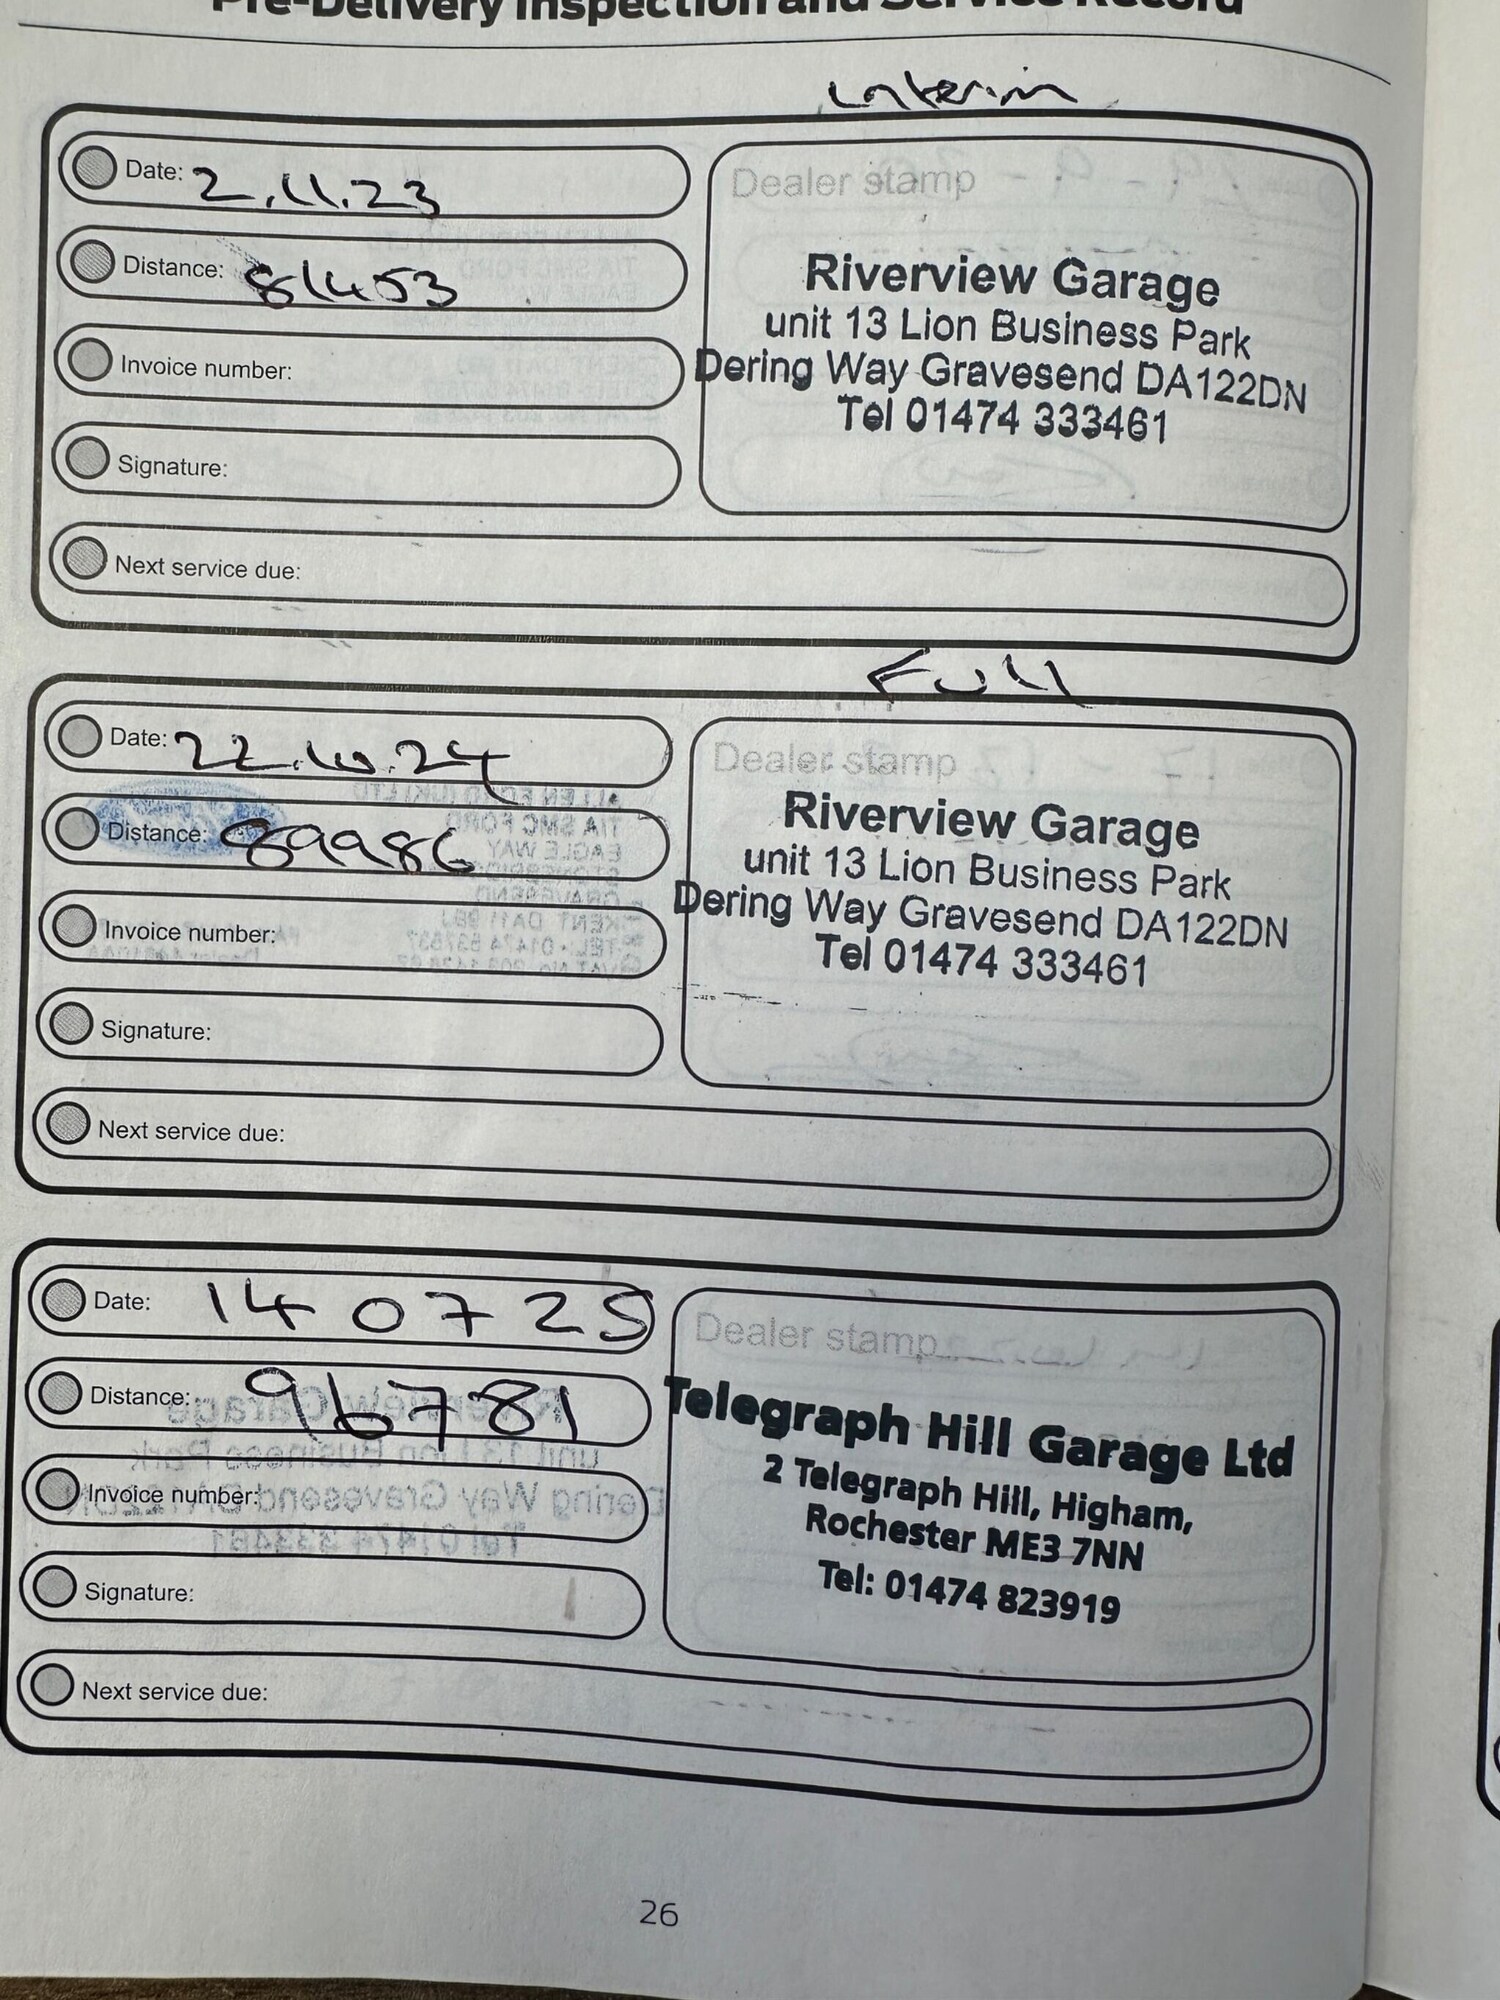 Pre-Delivery Inspection and Service Record
Interim
Date: 2.11.23
Distance: 81453
Invoice number:
Signature:
Next service due:
Dealer stamp
Riverview Garage
unit 13 Lion Business Park
Dering Way Gravesend DA122DN
Tel 01474 333461
Full
Date: 22.10.24
Distance: 89986
Invoice number:
Signature:
Next service due:
Dealer stamp
Riverview Garage
unit 13 Lion Business Park
Dering Way Gravesend DA122DN
Tel 01474 333461
Date: 14 07 25
Distance: 96781
Invoice number:
Signature:
Next service due:
Dealer stamp
Telegraph Hill Garage Ltd
2 Telegraph Hill, Higham,
Rochester ME3 7NN
Tel: 01474 823919
26